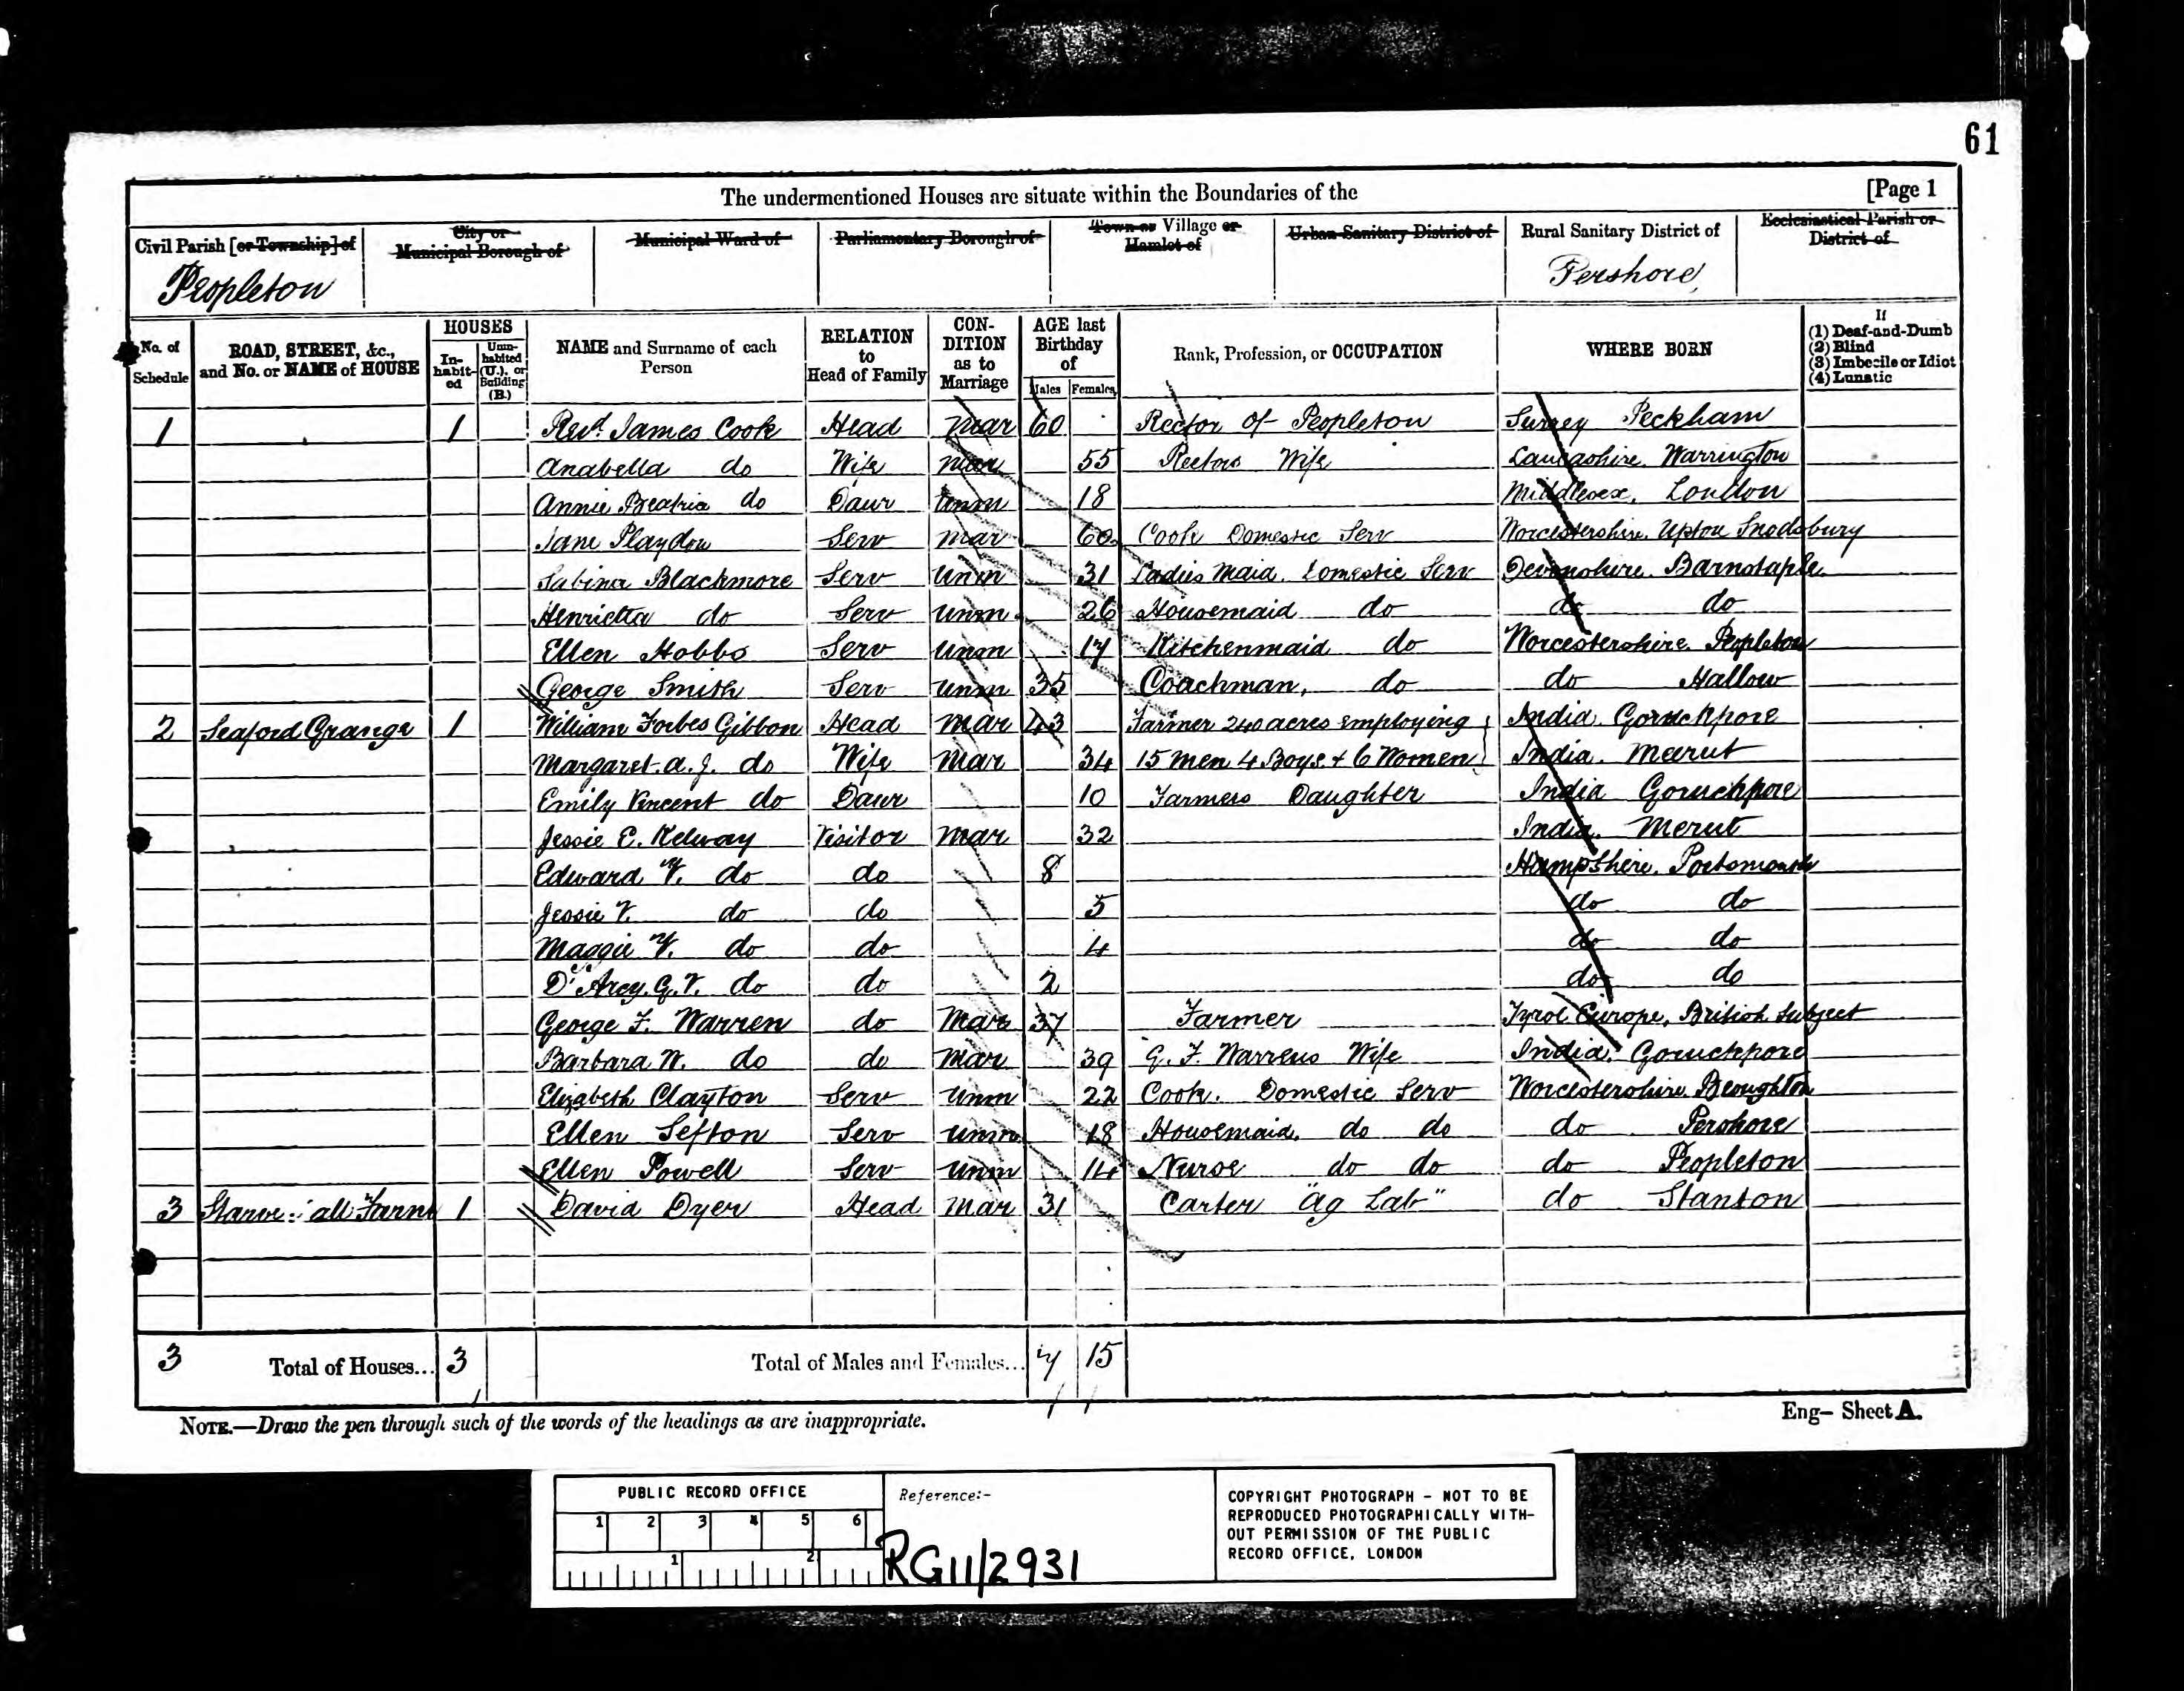 61
The undermentioned Houses are situate within the Boundaries of the [Page 1
Civil Parish [or Township] of Peopleton
City or Municipal Borough of
Municipal Ward of
Parliamentary Borough of
Town or Village or Hamlet of
Urban Sanitary District of
Rural Sanitary District of Pershore
Ecclesiastical Parish or District of
No. of Schedule
ROAD, STREET, &c., and No. or NAME of HOUSE
HOUSES
In-habit-ed
Unin-habited (U.), or Building (B.)
NAME and Surname of each Person
RELATION to Head of Family
CON-DITION as to Marriage
AGE last Birthday of
Males Females
Rank, Profession, or OCCUPATION
WHERE BORN
If
(1) Deaf-and-Dumb
(2) Blind
(3) Imbecile or Idiot
(4) Lunatic
1 1 Revd. James Cook Head Mar 60 Rector of Peopleton Surrey Peckham
Anabella do Wife Mar 55 Rectors Wife Lancashire. Warrington
Annie Beatrice do Daur Unm 18 Middlesex. London
Jane Playdon Serv Mar 60 Cook Domestic Serv Worcestershire. Upton Snodsbury
Sabina Blackmore Serv Unm 31 Ladies Maid. Domestic Serv Devonshire. Barnstaple.
Henrietta do Serv Unm 26 Housemaid do do do
Ellen Hobbs Serv Unm 17 Kitchenmaid do Worcestershire. Peopleton
George Smith Serv Unm 35 Coachman, do do Hallow
2 Seaford Grange 1 William Forbes Gibbon Head Mar 43 Farmer 240 acres employing India. Goruckpore
Margaret. A. J. do Wife Mar 34 15 Men 4 Boys + 6 Women India. Meerut
Emily Vincent do Daur 10 Farmers Daughter India Goruckpore
Jessie E. Kelway Visitor Mar 32 India. Merut
Edward V. do do 8 Hampshire. Portsmouth
Jessie V. do do 5 do do
Maggie V. do do 4 do do
D'Arcy. G. V. do do 2 do do
George F. Warren do Mar 37 Farmer Tyrol Europe, British Subject
Barbara W. do do Mar 39 G. F. Warrens Wife India. Goruckpore
Elizabeth Clayton Serv Unm 22 Cook. Domestic Serv Worcestershire. Broughton
Ellen Sefton Serv Unm 18 Housemaid. do do do Pershore
Ellen Powell Serv Unm 14 Nurse do do do Peopleton
3 Farm 1 David Dyer Head Mar 31 Carter "Ag Lab" do Stanton
3 Total of Houses... 3 Total of Males and Females... 7 15
NOTE.—Draw the pen through such of the words of the headings as are inappropriate.
Eng– Sheet A.
PUBLIC RECORD OFFICE
1 2 3 4 5 6
1 2
Reference:-
RG11/2931
COPYRIGHT PHOTOGRAPH - NOT TO BE
REPRODUCED PHOTOGRAPHICALLY WITH-
OUT PERMISSION OF THE PUBLIC
RECORD OFFICE, LONDON